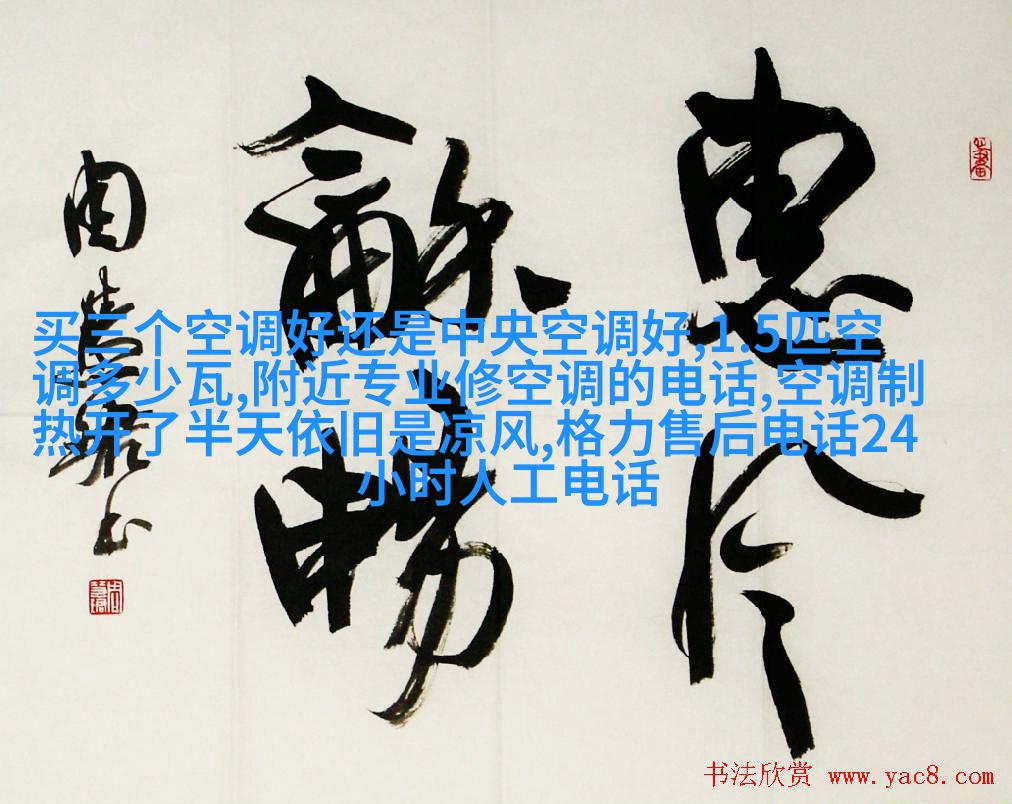 惠风
龢畅
买三个空调好还是中央空调好,1.5匹空
调多少瓦,附近专业修空调的电话,空调制
热开了半天依旧是凉风,格力售后电话24
小时人工电话
书法欣赏 www.yac8.com